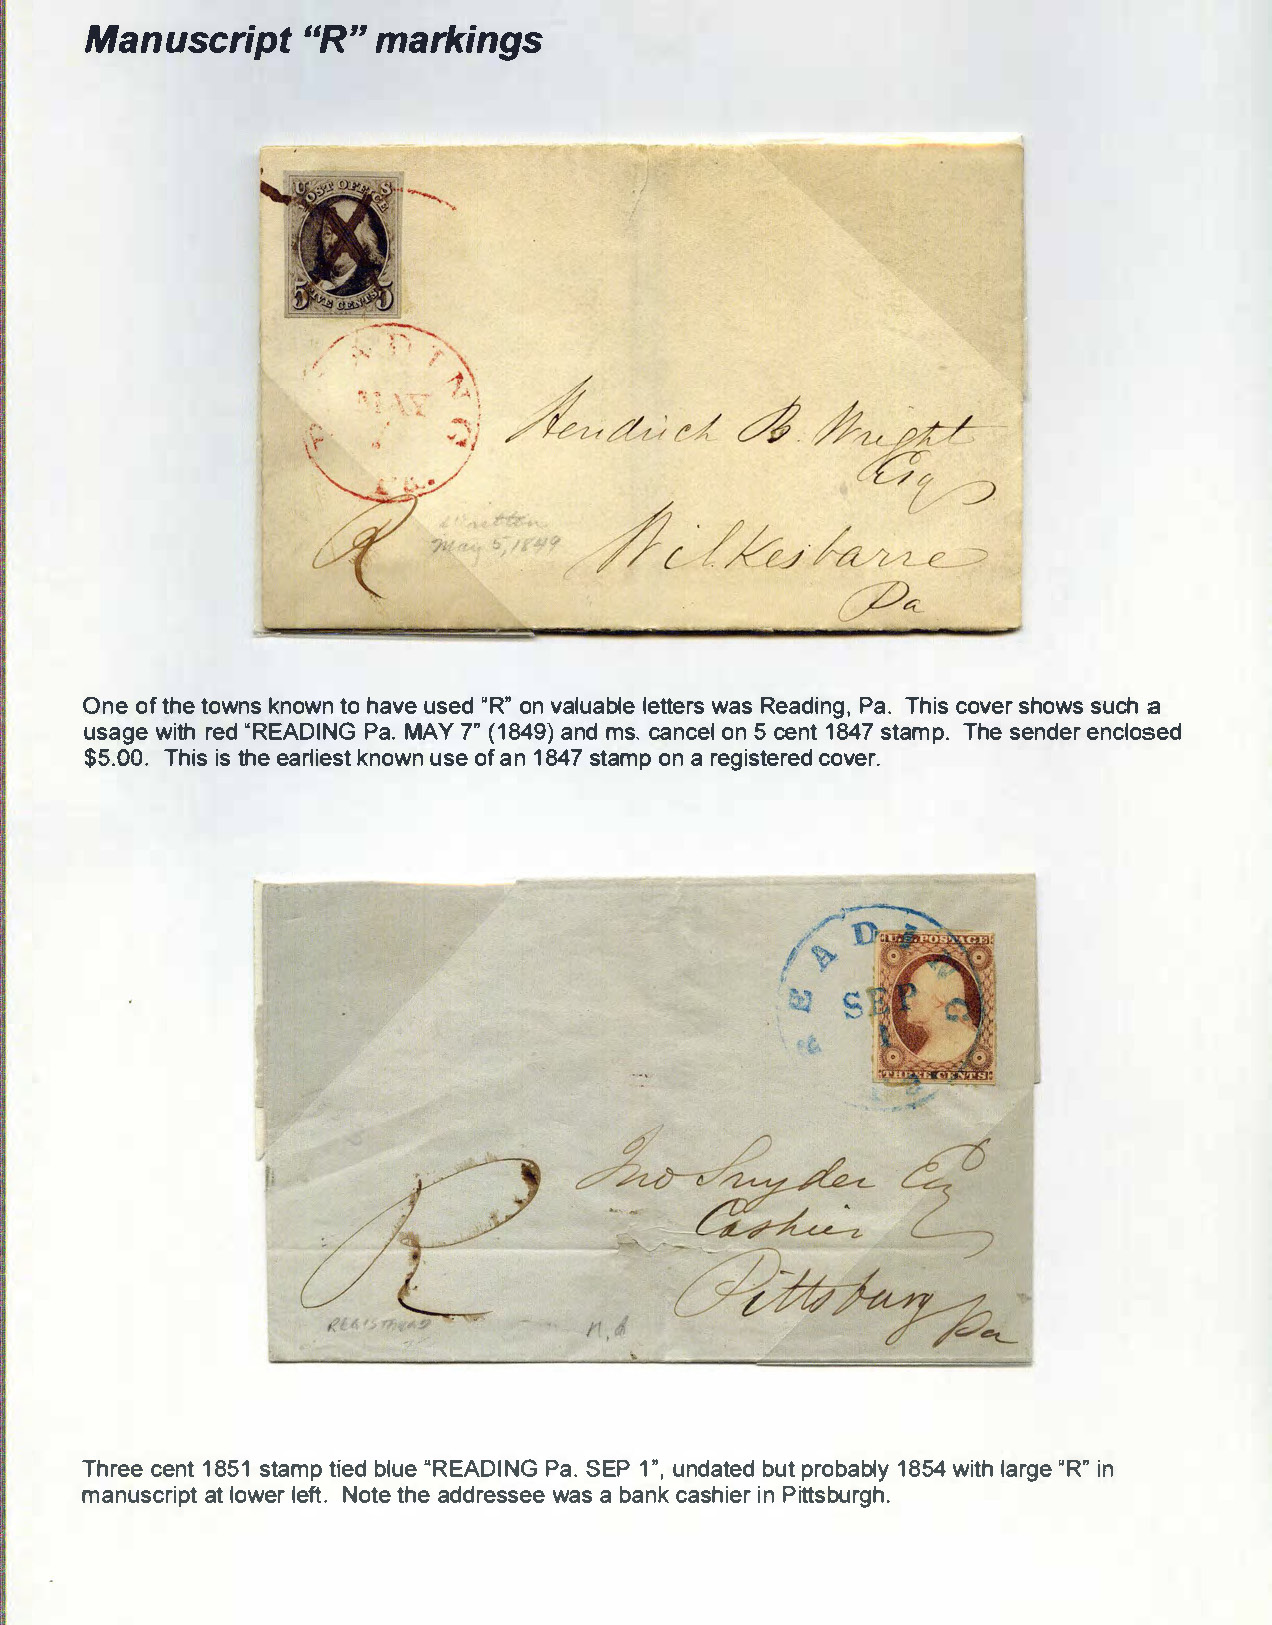 Manuscript “R” markings
U S
POST OFFICE
X
5 FIVE CENTS 5
READING
MAY
Pa.
Hendrick B. Wright
Esq
R
written
May 5, 1849
Wilkesbarre
Pa
One of the towns known to have used “R” on valuable letters was Reading, Pa. This cover shows such a
usage with red “READING Pa. MAY 7” (1849) and ms. cancel on 5 cent 1847 stamp. The sender enclosed
$5.00. This is the earliest known use of an 1847 stamp on a registered cover.
READING
SEP
1
Pa
U.S. POSTAGE
THREE CENTS
Jno Snyder Esq
Cashier
Pittsburg
Pa
R
REGISTERED
n.d
Three cent 1851 stamp tied blue “READING Pa. SEP 1”, undated but probably 1854 with large “R” in
manuscript at lower left. Note the addressee was a bank cashier in Pittsburgh.